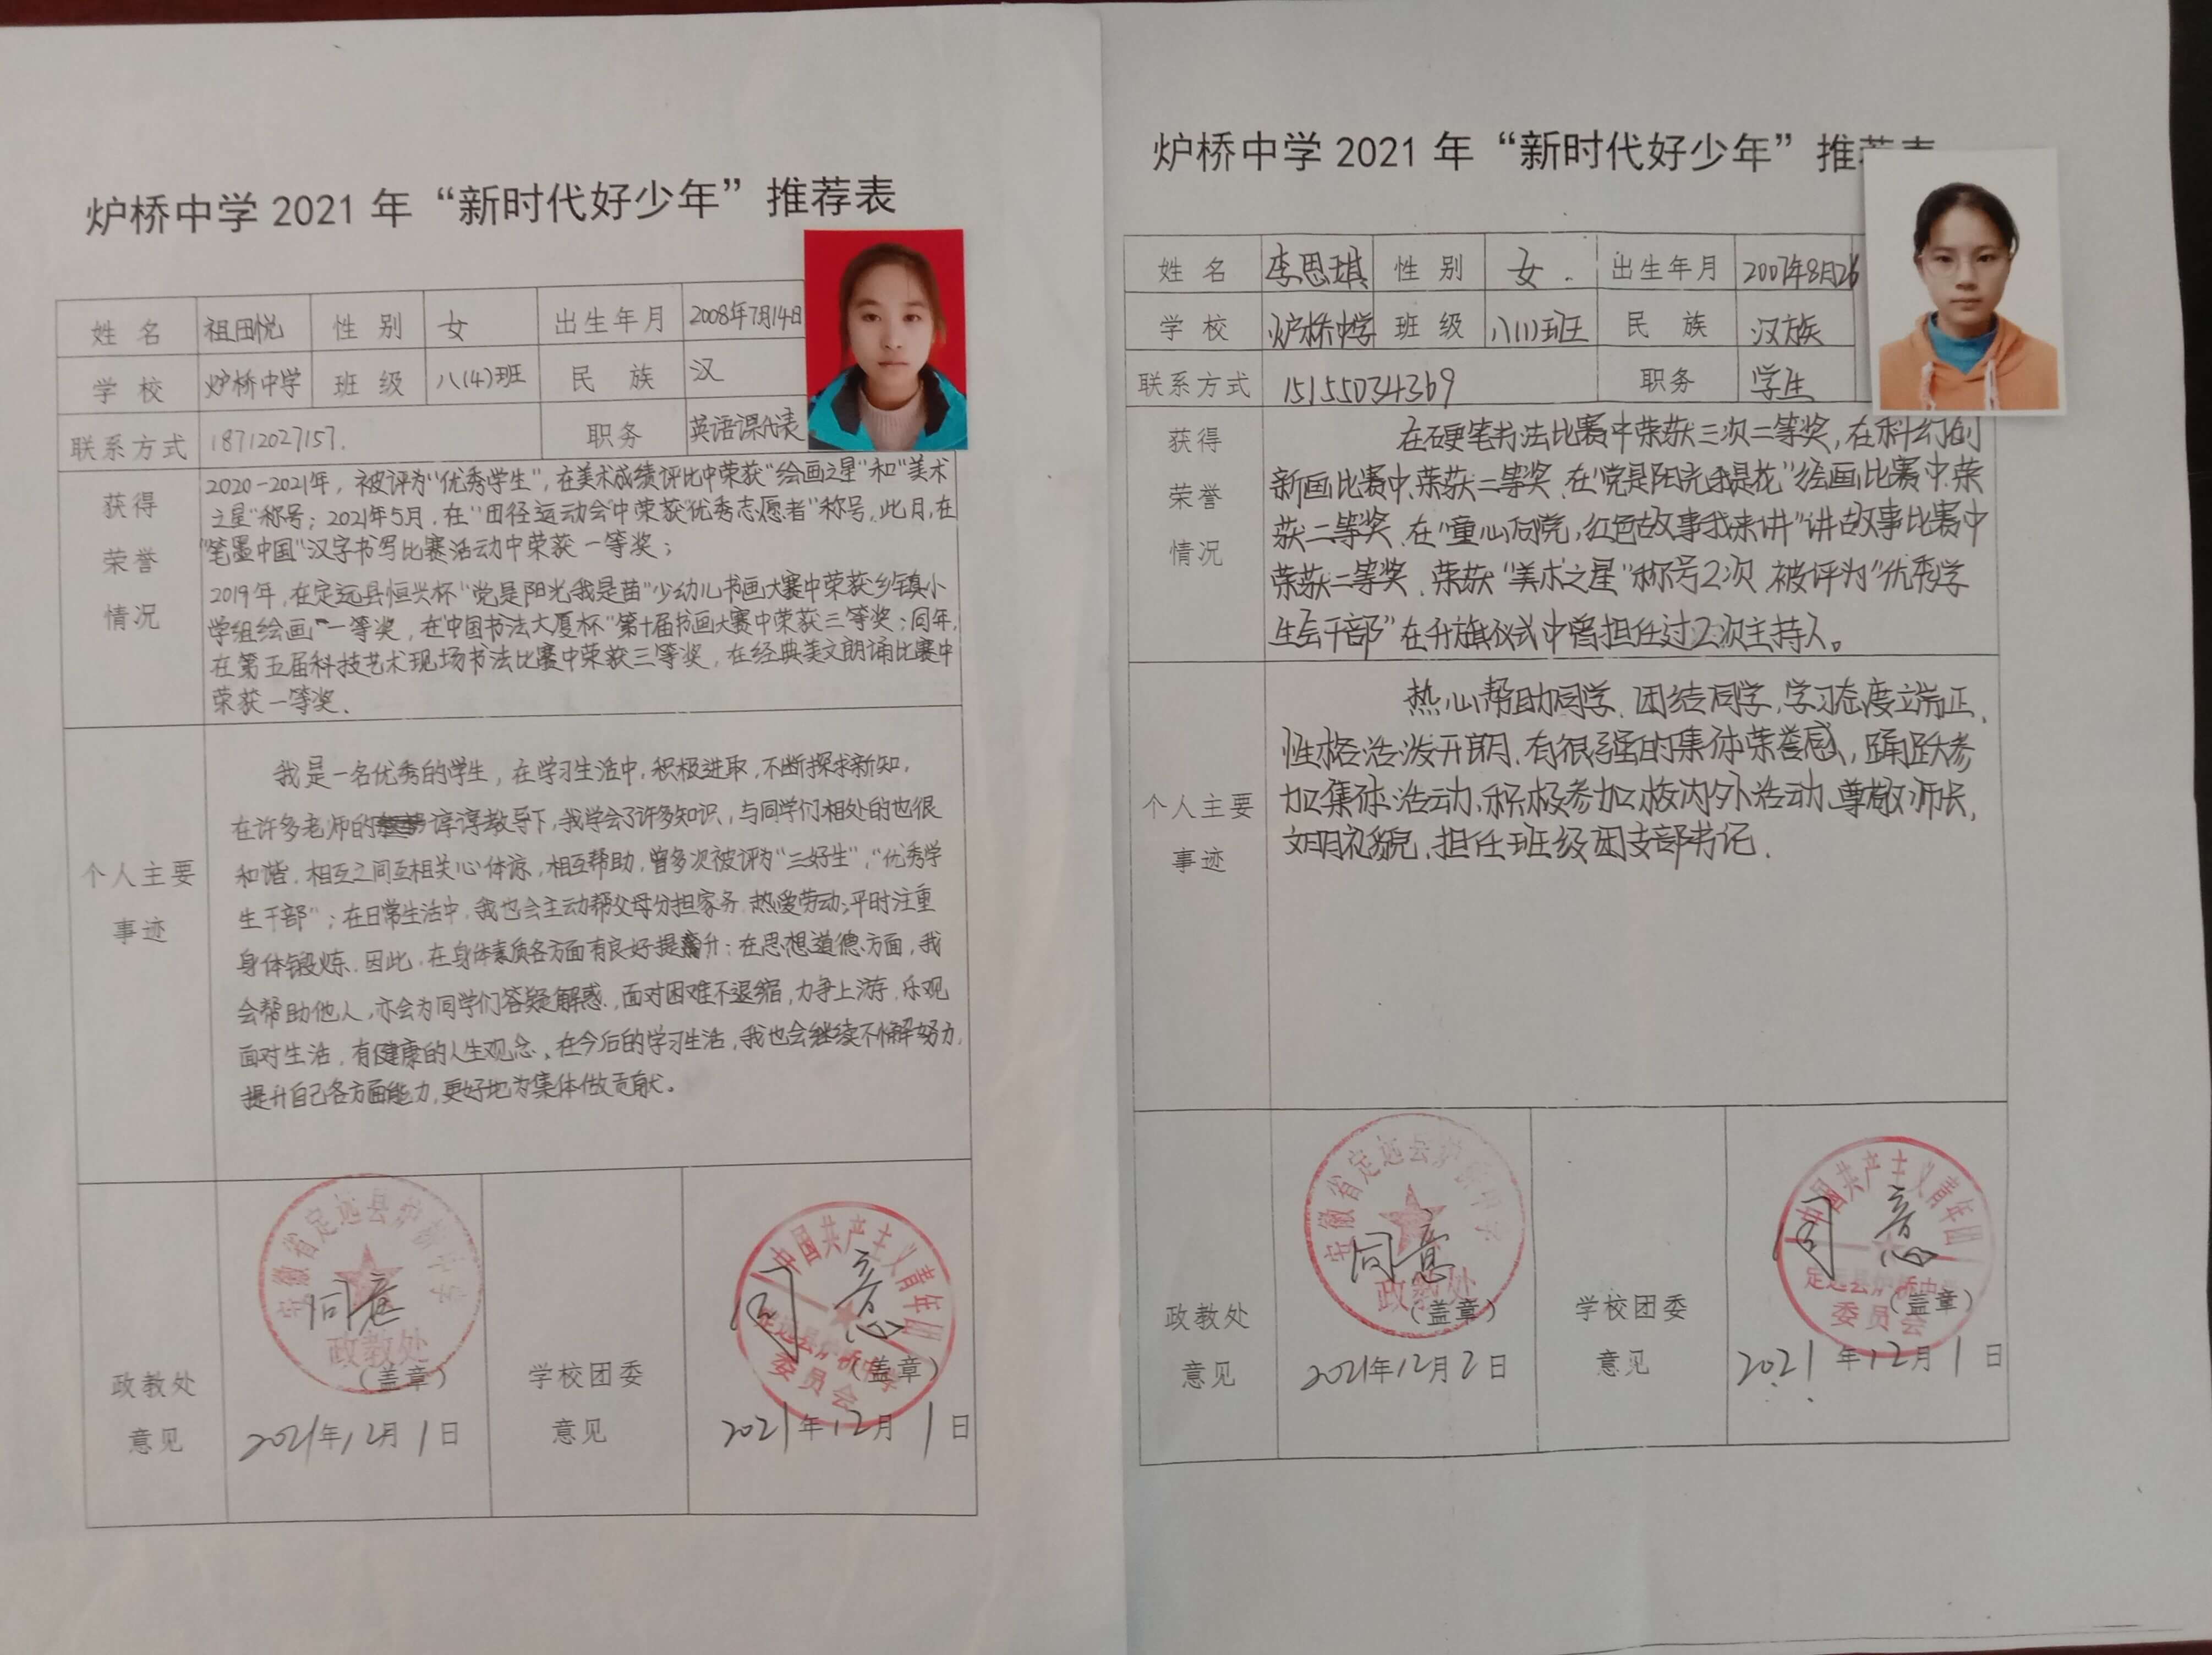 炉桥中学 2021 年“新时代好少年”推荐表
姓 名 祖田悦 性 别 女 出生年月 2008年7月14日
学 校 炉桥中学 班 级 八(4)班 民 族 汉
联系方式 18712027157. 职务 英语课代表
获得
荣誉
情况
2020-2021年，被评为“优秀学生”，在美术成绩评比中荣获“绘画之星”和“美术
之星”称号；2021年5月，在“田径运动会”中荣获“优秀志愿者”称号，此月，在
“笔墨中国”汉字书写比赛活动中荣获一等奖；
2019年，在定远县恒兴杯“党是阳光我是苗”少幼儿书画大赛中荣获乡镇小
学组绘画一等奖，在“中国书法大厦杯”第十届书画大赛中荣获三等奖；同年，
在第五届科技艺术现场书法比赛中荣获三等奖，在经典美文朗诵比赛中
荣获一等奖、
个人主要
事迹
我是一名优秀的学生，在学习生活中，积极进取，不断探求新知，
在许多老师的谆谆教导下，我学会了许多知识，与同学们相处的也很
和谐，相互之间互相关心体谅，相互帮助，曾多次被评为“三好生”，“优秀学
生干部”；在日常生活中，我也会主动帮父母分担家务，热爱劳动；平时注重
身体锻炼，因此，在身体素质各方面有良好提升；在思想道德方面，我
会帮助他人，亦会为同学们答疑解惑，面对困难不退缩，力争上游，乐观
面对生活，有健康的人生观念、在今后的学习生活，我也会继续不懈努力，
提升自己各方面能力，更好地为集体做贡献。
政教处
意见
安徽省定远县炉桥中学
同意
政教处
（盖章）
2021年12月1日
学校团委
意见
中国共产主义青年团
同意
定远县炉桥中学
委员会
（盖章）
2021年12月1日
炉桥中学 2021 年“新时代好少年”推
姓 名 李思琪 性 别 女. 出生年月 2007年8月26
学 校 炉桥中学 班 级 八(1)班 民 族 汉族
联系方式 15155034369 职务 学生
获得
荣誉
情况
在硬笔书法比赛中荣获三次二等奖，在科幻创
新画比赛中荣获二等奖、在“党是阳光我是花”绘画比赛中荣
获二等奖、在“童心向党，红色故事我来讲”讲故事比赛中
荣获二等奖、荣获“美术之星”称号2次、被评为“优秀学
生会干部”在升旗仪式中曾担任过2次主持人。
个人主要
事迹
热心帮助同学、团结同学，学习态度端正、
性格活泼开朗、有很强的集体荣誉感，踊跃参
加集体活动、积极参加校内外活动、尊敬师长，
文明礼貌、担任班级团支部书记.
政教处
意见
安徽省定远县炉桥中学
同意
政教处
（盖章）
2021年12月2日
学校团委
意见
中国共产主义青年团
同意
定远县炉桥中
委员会
（盖章）
2021年12月1日